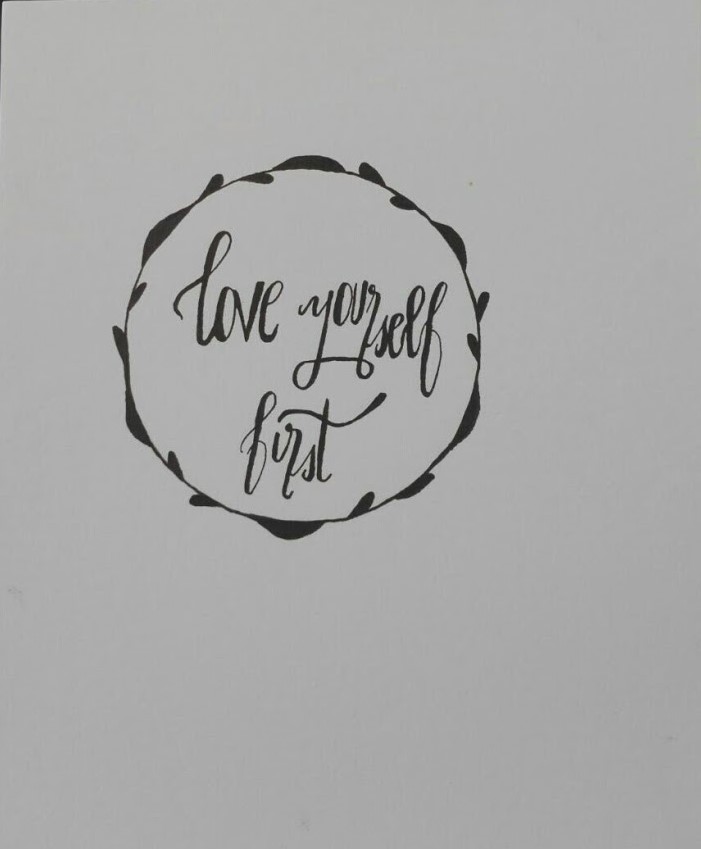 love yourself
first